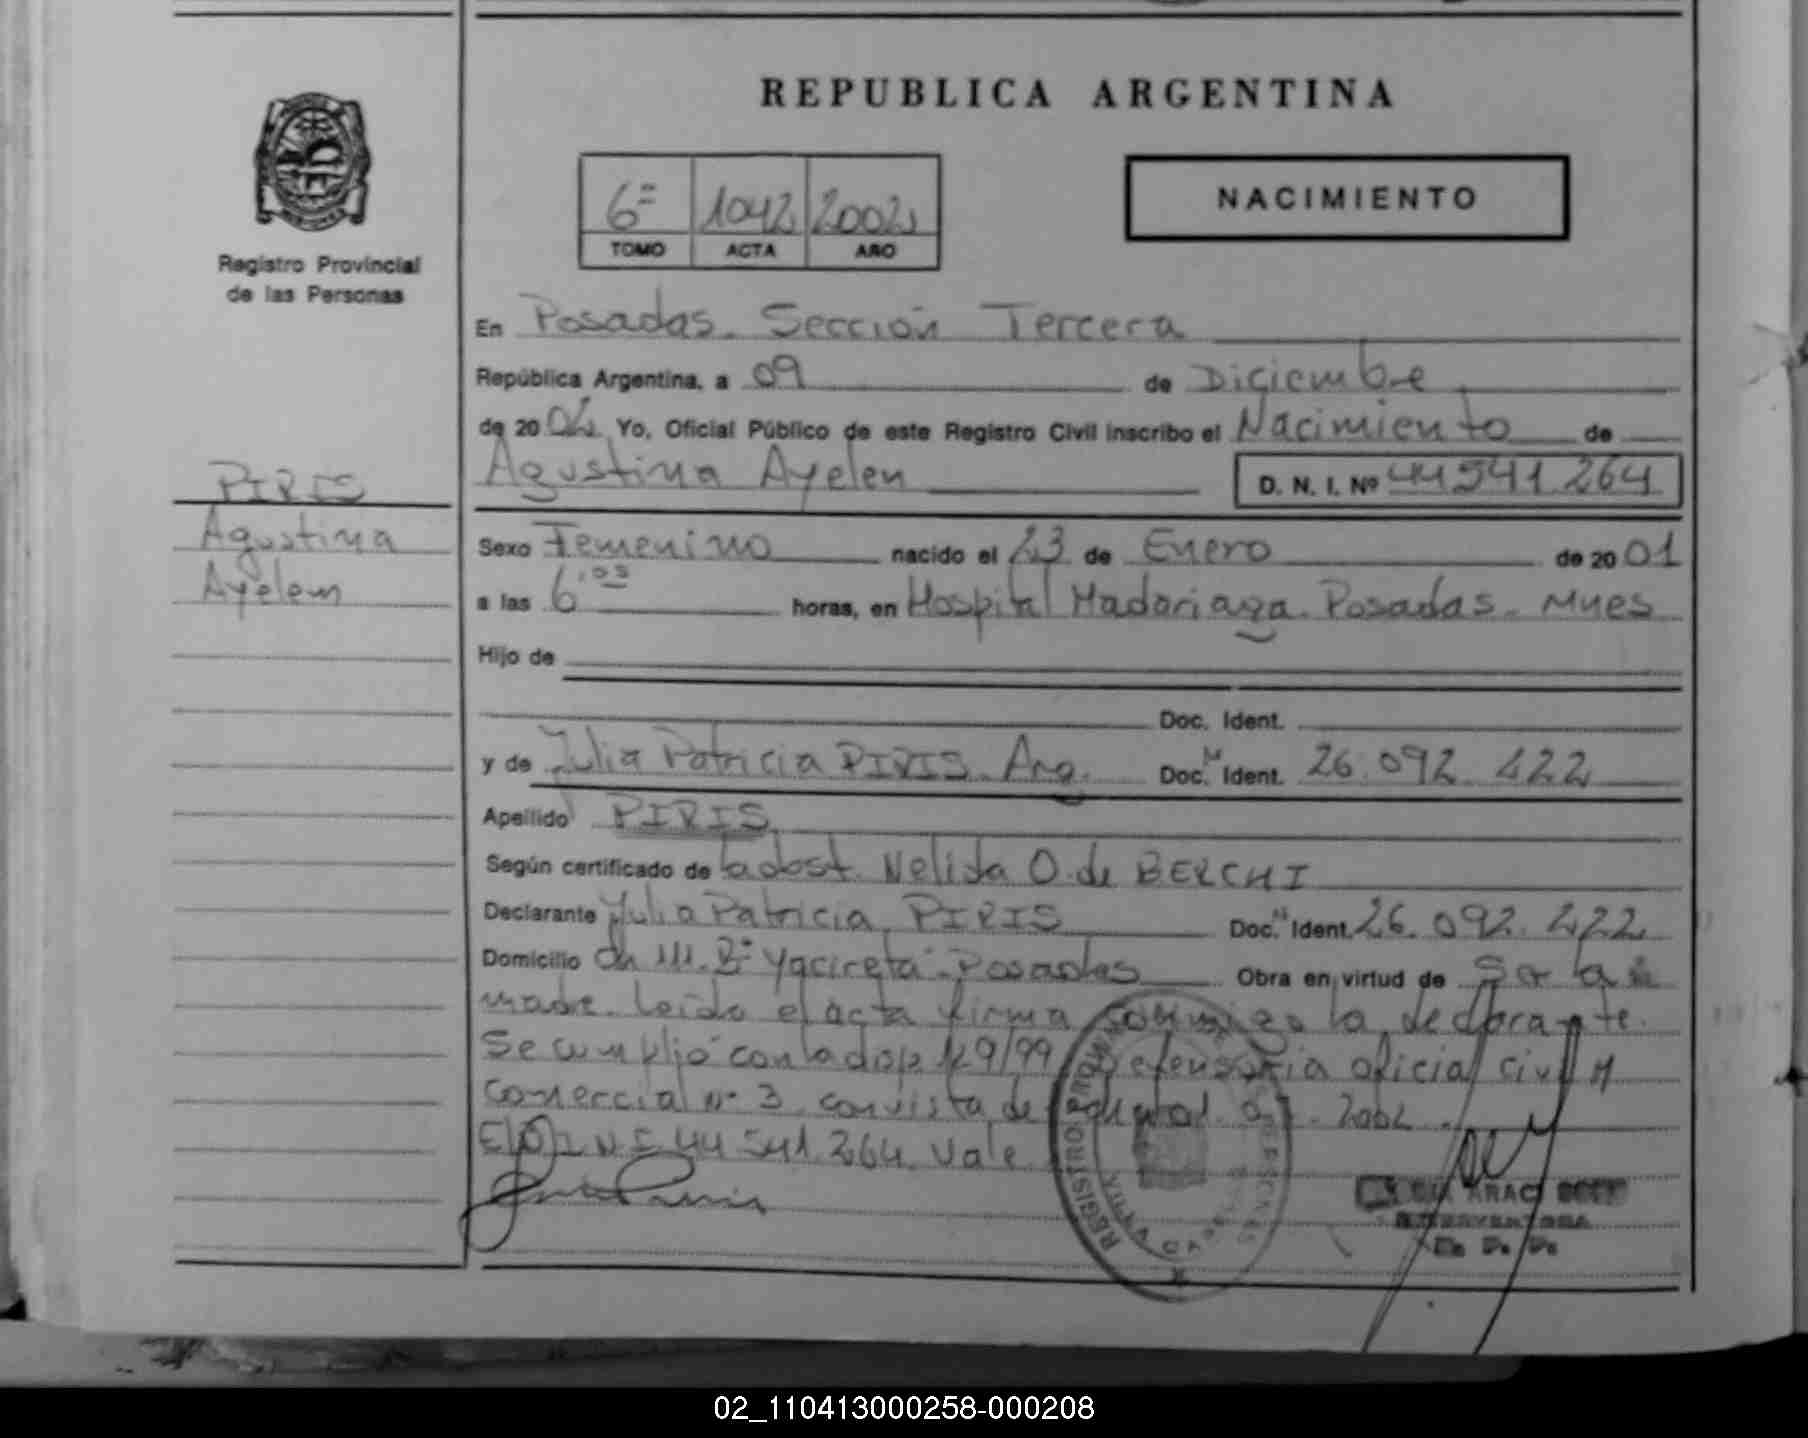 REPUBLICA ARGENTINA
6º 1042 2002
TOMO ACTA AÑO
NACIMIENTO
Registro Provincial
de las Personas
En Posadas. Sección Tercera
República Argentina, a 09 de Diciembre
de 2002 Yo, Oficial Público de este Registro Civil inscribo el Nacimiento de
PIRIS
Agustina Ayelen D. N. I. Nº 44541.264
Agustina
Ayelen
Sexo Femenino nacido el 23 de Enero de 2001
a las 6,05 horas, en Hospital Madariaga. Posadas. Mnes
Hijo de
Doc. Ident.
y de Julia Patricia PIRIS. Arg. Doc. Ident. 26.092.422
Apellido PIRIS
Según certificado de la obst. Nelida O. de BERCHI
Declarante Julia Patricia PIRIS Doc. Ident. 26.092.422
Domicilio Ch 111. Bº Yacireta. Posadas Obra en virtud de Ser la
madre. Leída el acta firma conmigo la declarante.
Se cumplió con la disp. 29/99 Defensoria oficial civil y
Comercial nº 3. con vista de 2002.
El D.N.I 44 541.264. Vale
REGISTRO PROVINCIAL DE LAS PERSONAS
ARACI
INTERVENTORA
R. P. P.
02_110413000258-000208